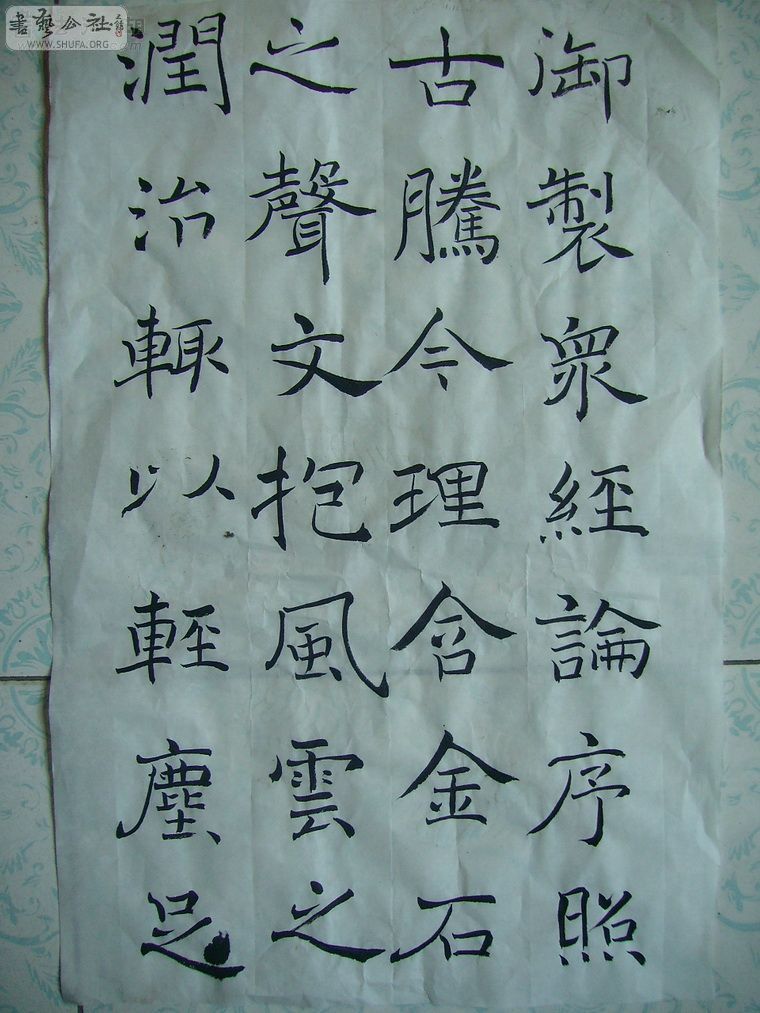 御製衆經論序照
古騰今理含金石
之聲文抱風雲之
潤治輙以輕塵足
書藝公社
WWW.SHUFA.ORG